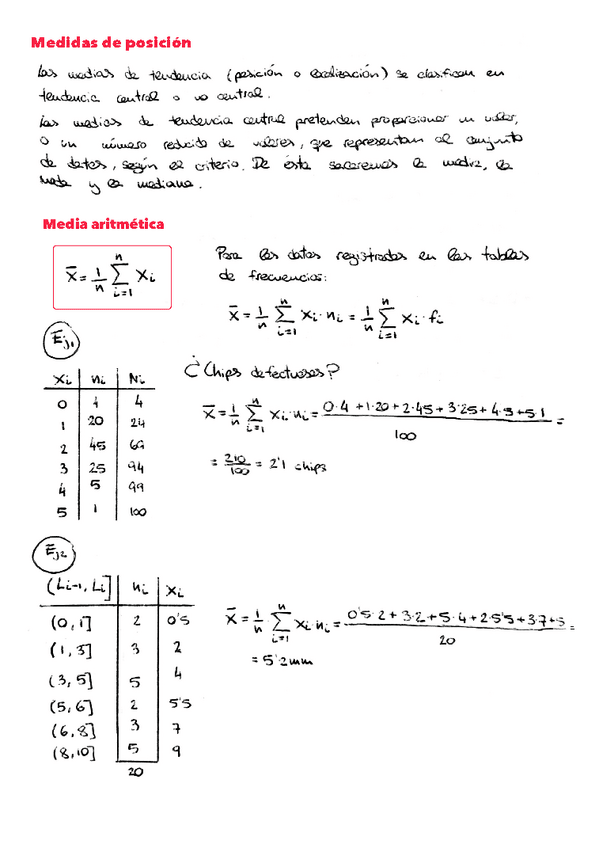 Medidas de posición
Las medias de tendencia (posición o localización) se clasifican en
tendencia central o no central.
Las medias de tendencia central pretenden proporcionar un valor,
o un número reducido de valores, que representan al conjunto
de datos, según el criterio. De ésta sacaremos la media, la
moda y la mediana.
Media aritmética
x̄ = 1/n ∑ᵢ₌₁ⁿ xᵢ
Para los datos registrados en las tablas
de frecuencias:
x̄ = 1/n ∑ᵢ₌₁ⁿ xᵢ·nᵢ = 1/n ∑ᵢ₌₁ⁿ xᵢ·fᵢ
Ej1
¿Chips defectuosos?
xi ni Ni
0 4 4
1 20 24
2 45 69
3 25 94
4 5 99
5 1 100
x̄ = 1/n ∑ᵢ₌₁ⁿ xᵢ·nᵢ = (0·4+1·20+2·45+3·25+4·5+5·1)/100 =
= 210/100 = 2'1 chips
Ej2
(Li-1, Li] ni xi
(0,1] 2 0'5
(1,3] 3 2
(3,5] 5 4
(5,6] 2 5'5
(6,8] 3 7
(8,10] 5 9
20
x̄ = 1/n · ∑ᵢ₌₁ⁿ xᵢ·nᵢ = (0'5·2+3·2+5·4+2·5'5+3·7+5/20 =
= 5'2mm